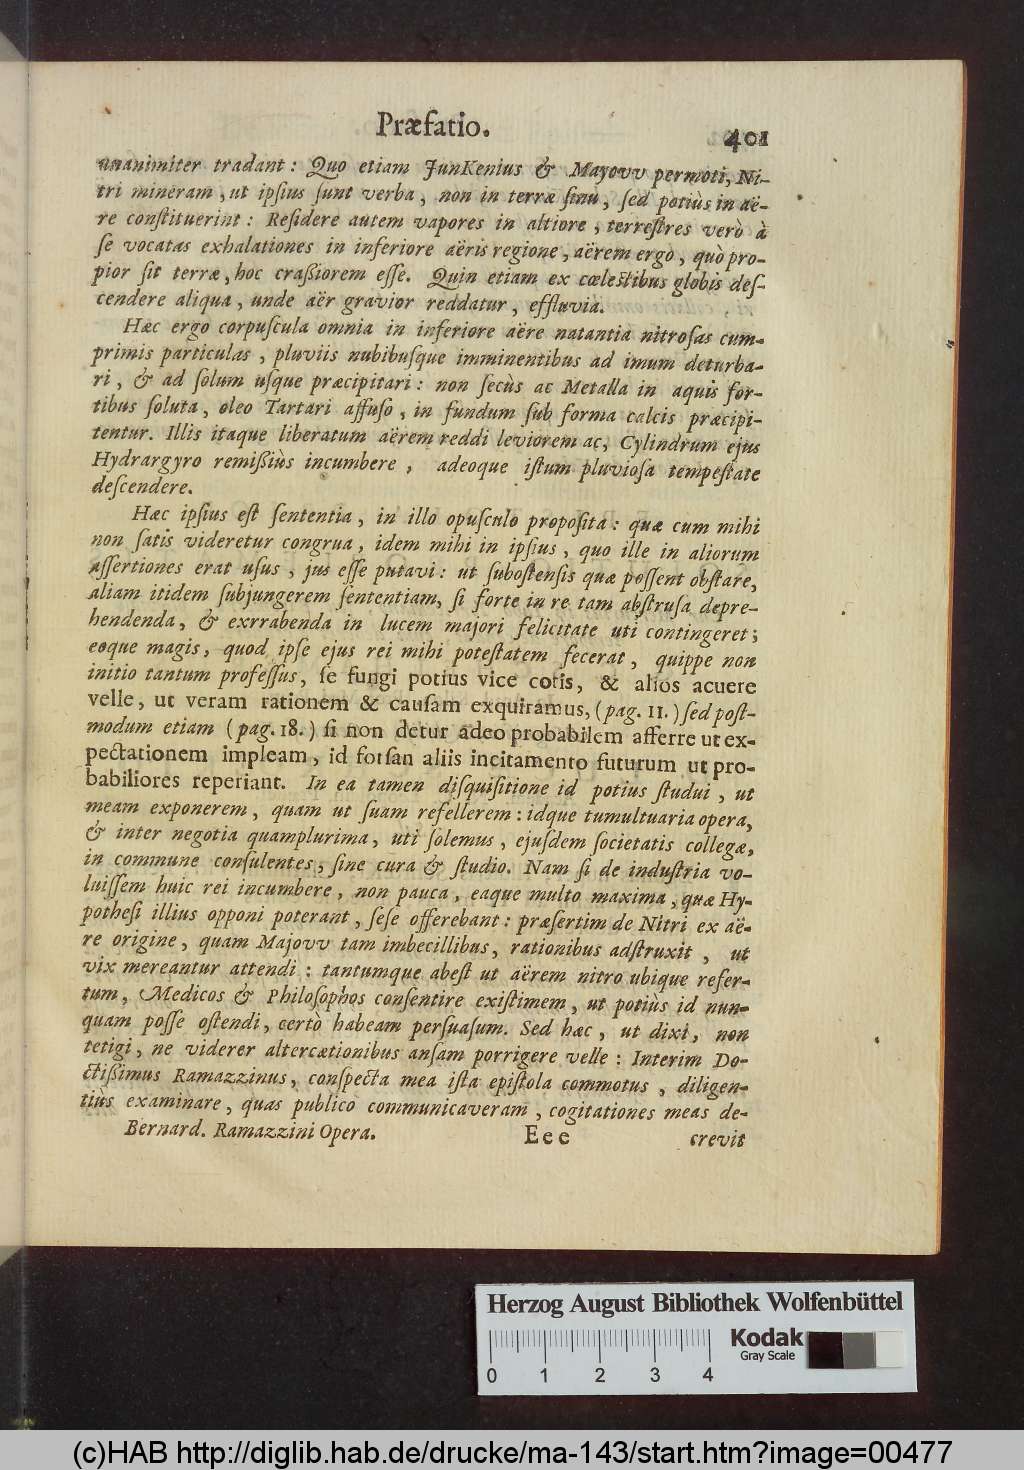 Præfatio. 401
unanimiter tradant: Quo etiam JunKenius & Majovv permoti, Ni-
tri mineram, ut ipſius ſunt verba, non in terræ ſinu, ſed potiùs in aë-
re conſtituerint: Reſidere autem vapores in altiore, terreſtres verò à
ſe vocatas exhalationes in inferiore aëris regione, aërem ergo, quò pro-
pior ſit terræ, hoc craßiorem eſſe. Quin etiam ex cœleſtibus globis deſ-
cendere aliqua, unde aër gravior reddatur, effluvia.
Hæc ergo corpuſcula omnia in inferiore aëre natantia nitroſas cum-
primis particulas, pluviis nubibuſque imminentibus ad imum deturba-
ri, & ad ſolum uſque præcipitari: non ſecùs ac Metalla in aquis for-
tibus ſoluta, oleo Tartari affuſo, in fundum ſub forma calcis præcipi-
tentur. Illis itaque liberatum aërem reddi leviorem ac, Cylindrum ejus
Hydrargyro remißiùs incumbere, adeoque iſtum pluvioſa tempeſtate
deſcendere.
Hæc ipſius eſt ſententia, in illo opuſculo propoſita: quæ cum mihi
non ſatis videretur congrua, idem mihi in ipſius, quo ille in aliorum
aſſertiones erat uſus, jus eſſe putavi: ut ſuboſtenſis quæ poſſent obſtare,
aliam itidem ſubjungerem ſententiam, ſi forte in re tam abſtruſa depre-
hendenda, & exrrabenda in lucem majori felicitate uti contingeret;
eoque magis, quod ipſe ejus rei mihi poteſtatem fecerat, quippe non
initio tantum profeſſus, ſe fungi potius vice cotis, & alios acuere
velle, ut veram rationem & cauſam exquiramus, (pag. 11.) ſed poſt-
modum etiam (pag. 18.) ſi non detur adeo probabilem afferre ut ex-
pectationem impleam, id forſan aliis incitamento futurum ut pro-
babiliores reperiant. In ea tamen diſquiſitione id potius ſtudui, ut
meam exponerem, quam ut ſuam refellerem: idque tumultuaria opera,
& inter negotia quamplurima, uti ſolemus, ejuſdem ſocietatis collegæ,
in commune conſulentes, ſine cura & ſtudio. Nam ſi de induſtria vo-
luiſſem huic rei incumbere, non pauca, eaque multo maxima, quæ Hy-
potheſi illius opponi poterant, ſeſe offerebant: præſertim de Nitri ex aë-
re origine, quam Majovv tam imbecillibus, rationibus adſtruxit, ut
vix mereantur attendi: tantumque abeſt ut aërem nitro ubique refer-
tum, Medicos & Philoſophos conſentire exiſtimem, ut potiùs id nun-
quam poſſe oſtendi, certò habeam perſuaſum. Sed hæc, ut dixi, non
tetigi, ne viderer altercætionibus anſam porrigere velle: Interim Do-
ctißimus Ramazzinus, conſpecta mea iſta epiſtola commotus, diligen-
tiùs examinare, quas publico communicaveram, cogitationes meas de-
Bernard. Ramazzini Opera. Eee crevit
Herzog August Bibliothek Wolfenbüttel
Kodak
Gray Scale
0 1 2 3 4
(c)HAB http://diglib.hab.de/drucke/ma-143/start.htm?image=00477